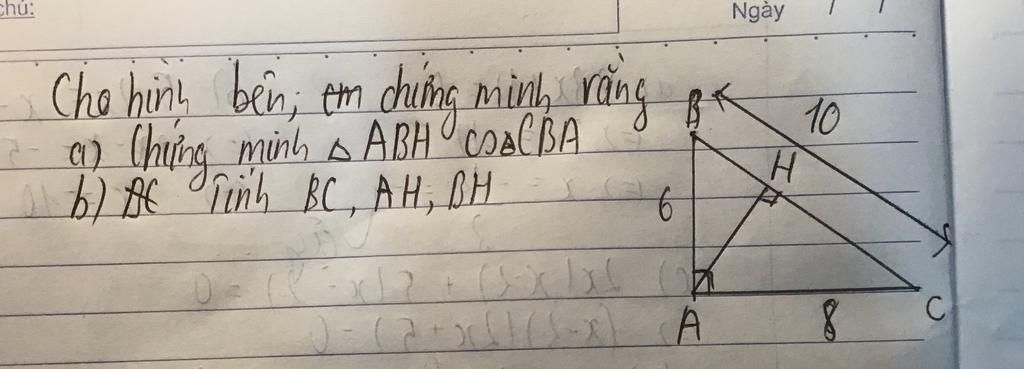 chú:
Ngày / /
Cho hình bên, em chứng minh rằng
a) Chứng minh △ ABH ∽ △CBA
b) Tính BC, AH, BH
B
10
H
6
A
8
C